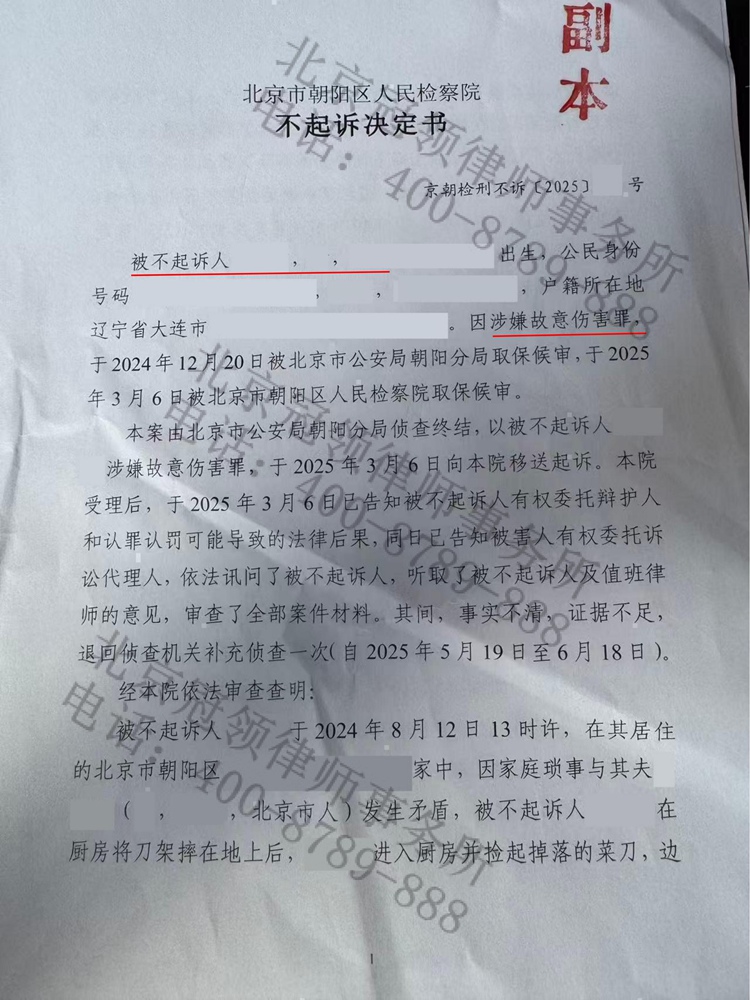 副本
北京市朝阳区人民检察院
不起诉决定书
京朝检刑不诉〔2025〕 号
被不起诉人 ， ， 出生，公民身份
号码 ， ， ，户籍所在地
辽宁省大连市 。因涉嫌故意伤害罪，
于2024年12月20日被北京市公安局朝阳分局取保候审，于2025
年3月6日被北京市朝阳区人民检察院取保候审。
本案由北京市公安局朝阳分局侦查终结，以被不起诉人
涉嫌故意伤害罪，于2025年3月6日向本院移送起诉。本院
受理后，于2025年3月6日已告知被不起诉人有权委托辩护人
和认罪认罚可能导致的法律后果，同日已告知被害人有权委托诉
讼代理人，依法讯问了被不起诉人，听取了被不起诉人及值班律
师的意见，审查了全部案件材料。其间，事实不清，证据不足，
退回侦查机关补充侦查一次（自2025年5月19日至6月18日）。
经本院依法审查查明：
被不起诉人 于2024年8月12日13时许，在其居住
的北京市朝阳区 家中，因家庭琐事与其夫
（ ， ，北京市人）发生矛盾，被不起诉人 在
厨房将刀架摔在地上后， 进入厨房并捡起掉落的菜刀，边
1
北京冠领律师事务所
电话：400-8789-888
北京冠领律师事务所
电话：400-8789-888
北京冠领律师事务所
电话：400-8789-888